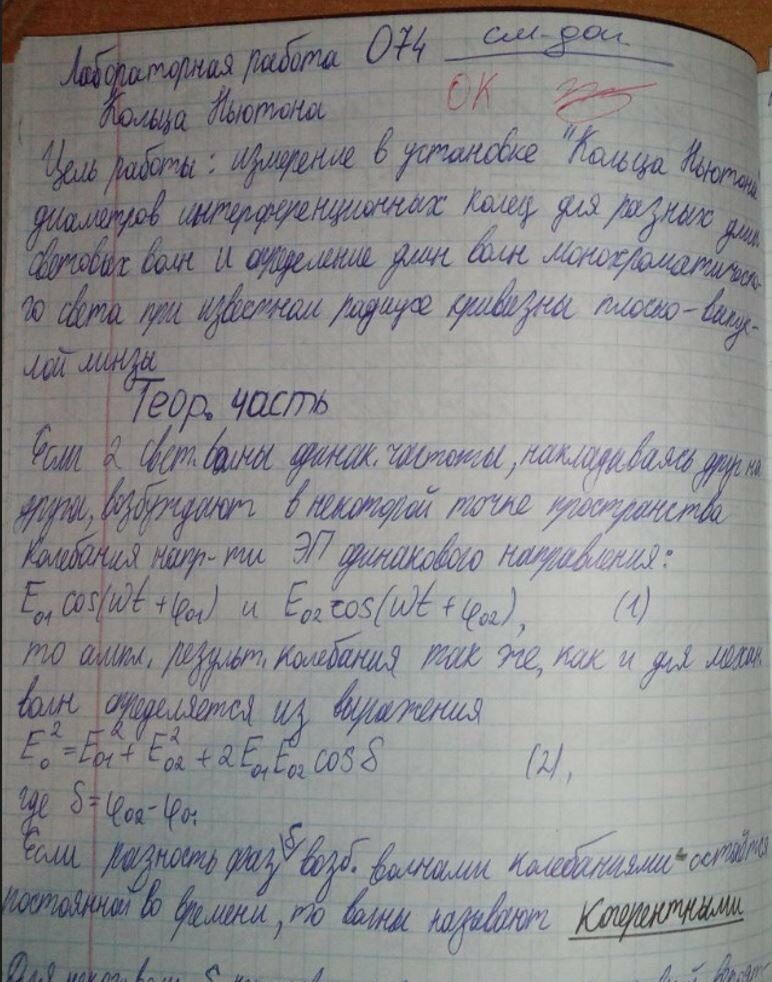 Лабораторная работа О74 см. доп.
Кольца Ньютона ОК
Цель работы: измерение в установке "Кольца Ньютона"
диаметров интерференционных колец для разных длин
световых волн и определение длин волн монохроматическо-
го света при известном радиусе кривизны плоско-выпук-
лой линзы
Теор. часть
Если 2 свет. волны одинак. частоты, накладываясь друг на
друга, возбуждают в некоторой точке пространства
колебания напр-ти ЭП одинакового направления:
E₀₁ cos(ωt + φ₀₁) и E₀₂ cos(ωt + φ₀₂), (1)
то ампл. результ. колебания так же, как и для механ.
волн определяется из выражения
E₀² = E₀₁² + E₀₂² + 2E₀₁E₀₂ cos δ (2),
где δ = φ₀₂ - φ₀₁
Если разность фаз δ возб. волнами колебаниями остаётся
постоянной во времени, то волны называют когерентными